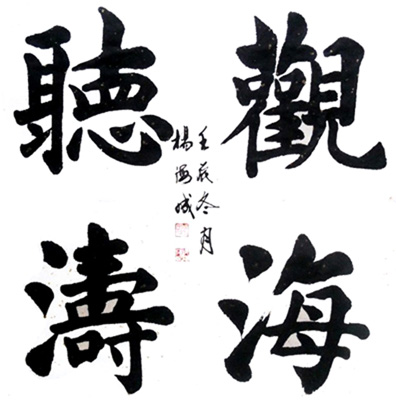 觀海
聽濤
壬辰冬月
楊海成